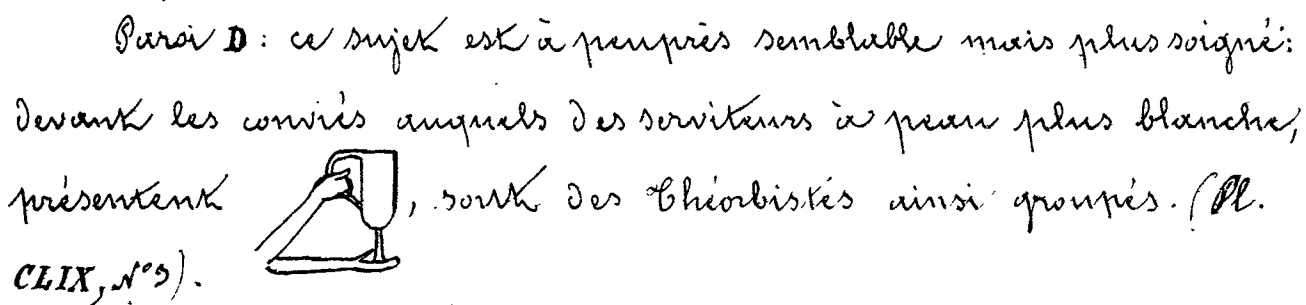 Paroi D: ce sujet est à peuprès semblable mais plus soigné:
devant les conviés auquels des serviteurs à peau plus blanche,
présentent , sont des Théorbistés ainsi groupés. (Pl.
CLIX, N°3).